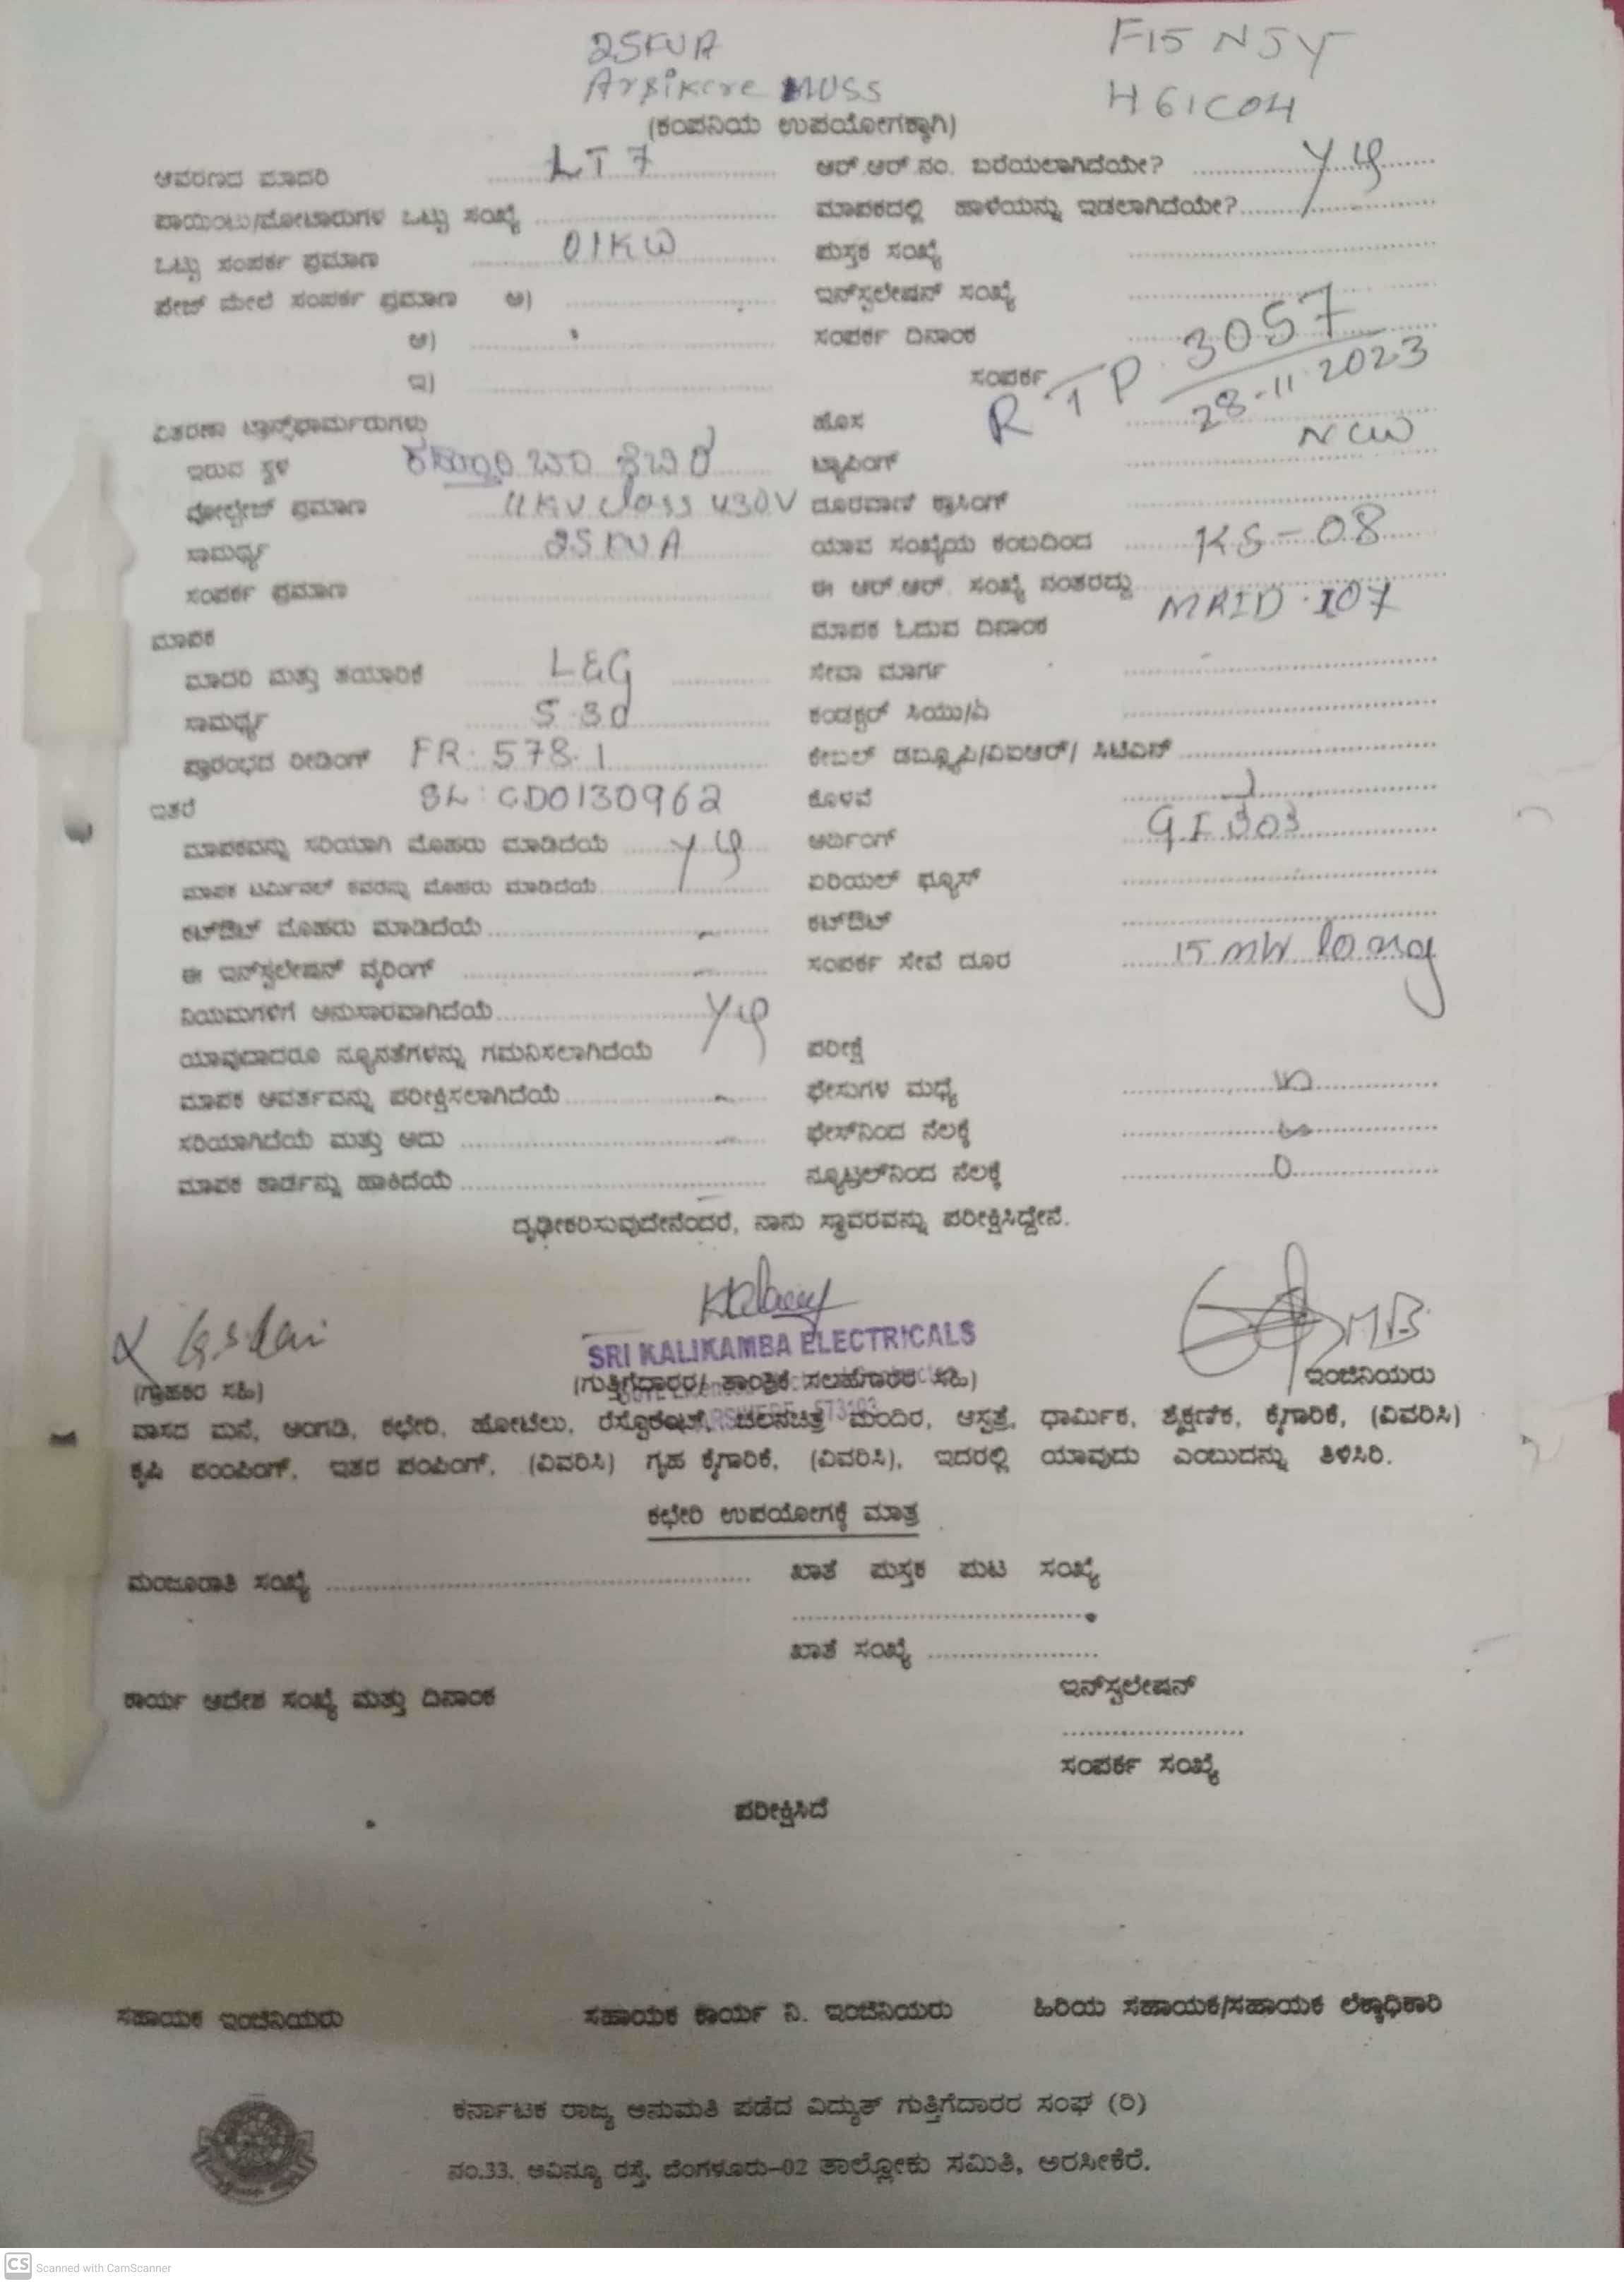 25KVA
F15 NSY
Arsikere MUSS
H61C04
(ಕಂಪನಿಯ ಉಪಯೋಗಕ್ಕಾಗಿ)
ಆವರಣದ ಮಾದರಿ LT 7 ಆರ್.ಆರ್.ನಂ. ಬರೆಯಲಾಗಿದೆಯೇ?
ಪಾಯಿಂಟು/ಮೋಟಾರುಗಳ ಒಟ್ಟು ಸಂಖ್ಯೆ ಮಾಪಕದಲ್ಲಿ ಹಾಳೆಯನ್ನು ಇಡಲಾಗಿದೆಯೇ?
ಒಟ್ಟು ಸಂಪರ್ಕ ಪ್ರಮಾಣ 01KW ಪುಸ್ತಕ ಸಂಖ್ಯೆ
ಪೇಜ್ ಮೇಲೆ ಸಂಪರ್ಕ ಪ್ರಮಾಣ ಅ) ಇನ್‌ಸ್ಟಲೇಷನ್ ಸಂಖ್ಯೆ
ಆ) ಸಂಪರ್ಕ ದಿನಾಂಕ
ಇ) ಸಂಪರ್ಕ RTP 3057
28-11-2023
ವಿತರಣಾ ಟ್ರಾನ್ಸ್‌ಫಾರ್ಮರುಗಳು ಹೊಸ
ಇರುವ ಸ್ಥಳ ಟ್ಯಾಪಿಂಗ್
ವೋಲ್ಟೇಜ್ ಪ್ರಮಾಣ 11KV class 430V ದೂರವಾಣಿ ಕ್ರಾಸಿಂಗ್
ಸಾಮರ್ಥ್ಯ 25KVA ಯಾವ ಸಂಖ್ಯೆಯ ಕಂಬದಿಂದ KS-08
ಸಂಪರ್ಕ ಪ್ರಮಾಣ ಈ ಆರ್.ಆರ್. ಸಂಖ್ಯೆ ನಂತರದ್ದು
ಮಾಪಕ ಮಾಪಕ ಓದುವ ದಿನಾಂಕ MRID-107
ಮಾದರಿ ಮತ್ತು ತಯಾರಿಕೆ L&G ಸೇವಾ ಮಾರ್ಗ
ಸಾಮರ್ಥ್ಯ 5-30 ಕಂಡಕ್ಟರ್ ಸಿಯು/ಎ
ಪ್ರಾರಂಭದ ರೀಡಿಂಗ್ FR: 578.1 ಕೇಬಲ್ ಡಬ್ಲ್ಯೂಪಿ/ವಿಐಆರ್/ ಸಿಟಿಎಸ್
ಇತರೆ SL: GD0130962 ಕೊಳವೆ
ಮಾಪಕವನ್ನು ಸರಿಯಾಗಿ ಮೊಹರು ಮಾಡಿದೆಯೆ ಅರ್ದಿಂಗ್ GI 303
ಮಾಪಕ ಟರ್ಮಿನಲ್ ಕವರನ್ನು ಮೊಹರು ಮಾಡಿದೆಯೆ ಏರಿಯಲ್ ಫ್ಯೂಸ್
ಕಟ್‌ಔಟ್ ಮೊಹರು ಮಾಡಿದೆಯೆ ಕಟ್‌ಔಟ್
ಈ ಇನ್‌ಸ್ಟಲೇಷನ್ ವೈರಿಂಗ್ ಸಂಪರ್ಕ ಸೇವೆ ದೂರ 15
ನಿಯಮಗಳಿಗೆ ಅನುಸಾರವಾಗಿದೆಯೆ
ಯಾವುದಾದರೂ ನ್ಯೂನತೆಗಳನ್ನು ಗಮನಿಸಲಾಗಿದೆಯೆ ಪರೀಕ್ಷೆ
ಮಾಪಕ ಆವರ್ತವನ್ನು ಪರೀಕ್ಷಿಸಲಾಗಿದೆಯೆ ಫೇಸುಗಳ ಮಧ್ಯೆ
ಸರಿಯಾಗಿದೆಯೆ ಮತ್ತು ಅದು ಫೇಸ್‌ನಿಂದ ನೆಲಕ್ಕೆ
ಮಾಪಕ ಕಾರ್ಡನ್ನು ಹಾಕಿದೆಯೆ ನ್ಯೂಟ್ರಲ್‌ನಿಂದ ನೆಲಕ್ಕೆ 0
ದೃಢೀಕರಿಸುವುದೇನೆಂದರೆ, ನಾನು ಸ್ಥಾವರವನ್ನು ಪರೀಕ್ಷಿಸಿದ್ದೇನೆ.
SRI KALIKAMBA ELECTRICALS
(ಗ್ರಾಹಕರ ಸಹಿ) (ಗುತ್ತಿಗೆದಾರರ/ ತಾಂತ್ರಿಕ ಸಲಹೆಗಾರರ ಸಹಿ) ಇಂಜಿನಿಯರು
ವಾಸದ ಮನೆ, ಅಂಗಡಿ, ಕಛೇರಿ, ಹೋಟೆಲು, ರೆಸ್ಟೊರೆಂಟ್, ಚಲನಚಿತ್ರ ಮಂದಿರ, ಆಸ್ಪತ್ರೆ, ಧಾರ್ಮಿಕ, ಶೈಕ್ಷಣಿಕ, ಕೈಗಾರಿಕೆ, (ವಿವರಿಸಿ)
ಕೃಷಿ ಪಂಪಿಂಗ್, ಇತರ ಪಂಪಿಂಗ್, (ವಿವರಿಸಿ) ಗೃಹ ಕೈಗಾರಿಕೆ, (ವಿವರಿಸಿ), ಇದರಲ್ಲಿ ಯಾವುದು ಎಂಬುದನ್ನು ತಿಳಿಸಿರಿ.
ಕಛೇರಿ ಉಪಯೋಗಕ್ಕೆ ಮಾತ್ರ
ಮಂಜೂರಾತಿ ಸಂಖ್ಯೆ ಖಾತೆ ಪುಸ್ತಕ ಪುಟ ಸಂಖ್ಯೆ
ಖಾತೆ ಸಂಖ್ಯೆ
ಕಾರ್ಯ ಆದೇಶ ಸಂಖ್ಯೆ ಮತ್ತು ದಿನಾಂಕ ಇನ್‌ಸ್ಟಲೇಷನ್
ಸಂಪರ್ಕ ಸಂಖ್ಯೆ
ಪರೀಕ್ಷಿಸಿದೆ
ಸಹಾಯಕ ಇಂಜಿನಿಯರು ಸಹಾಯಕ ಕಾರ್ಯ ನಿ. ಇಂಜಿನಿಯರು ಹಿರಿಯ ಸಹಾಯಕ/ಸಹಾಯಕ ಲೆಕ್ಕಾಧಿಕಾರಿ
ಕರ್ನಾಟಕ ರಾಜ್ಯ ಅನುಮತಿ ಪಡೆದ ವಿದ್ಯುತ್ ಗುತ್ತಿಗೆದಾರರ ಸಂಘ (ರಿ)
ನಂ.33, ಅವಿನ್ಯೂ ರಸ್ತೆ, ಬೆಂಗಳೂರು-02 ತಾಲ್ಲೋಕು ಸಮಿತಿ, ಅರಸೀಕೆರೆ.
CS Scanned with CamScanner